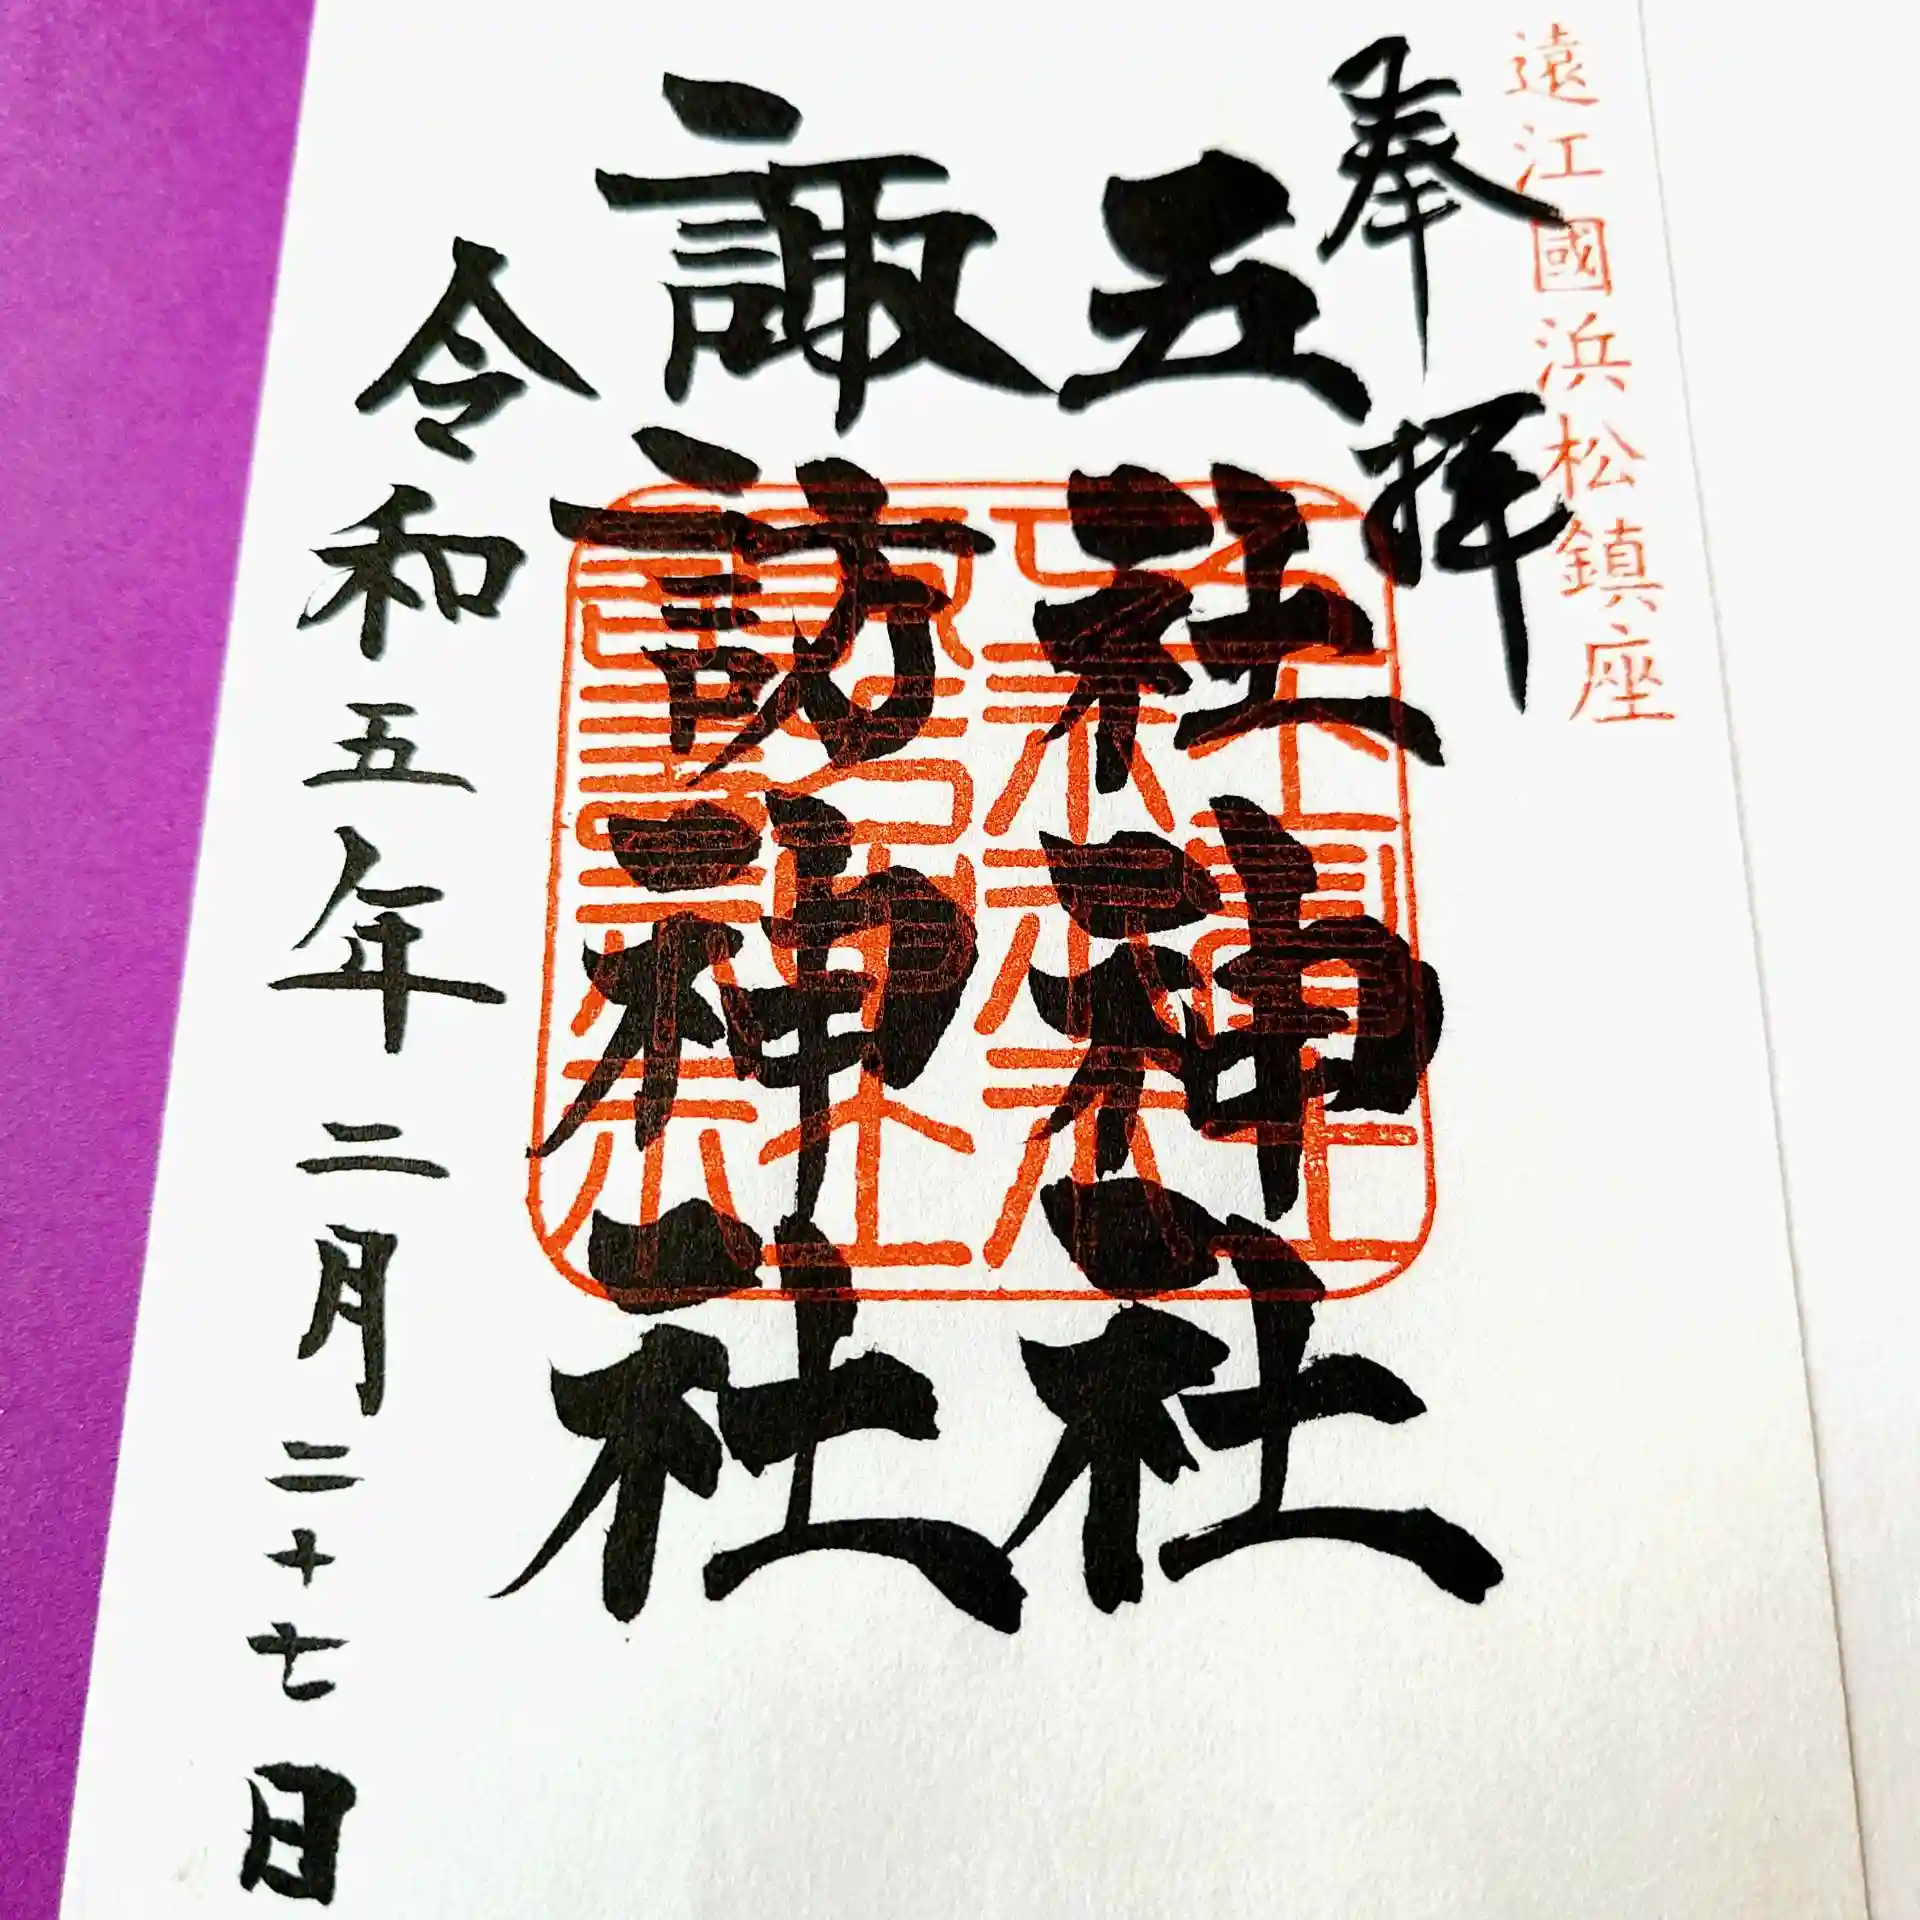 遠江國浜松鎮座
奉拝
五社神社
諏訪神社
令和五年二月二十七日